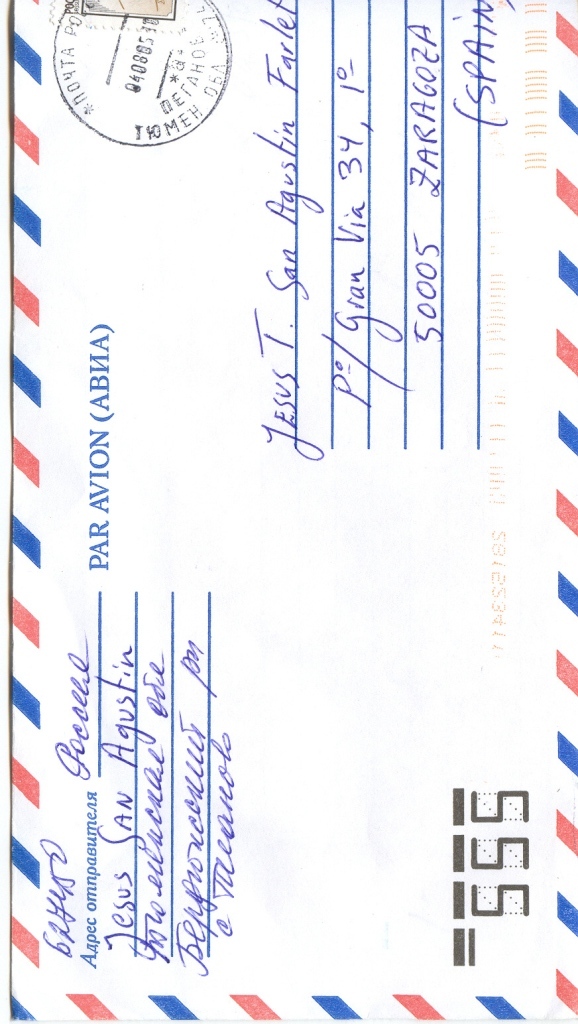 627450
Адрес отправителя Россия
JESUS SAN Agustin
Тюменская обл
Бердюжский рн
с Пеганово
PAR AVION (АВИА)
*ПОЧТА РО
040805
*а*
ПЕГАНОВО
ТЮМЕН ОБЛ
JESUS T. San Agustin Farlet
Pº/ Gran Via 34, 1º
50005 ZARAGOZA
(SPAIN